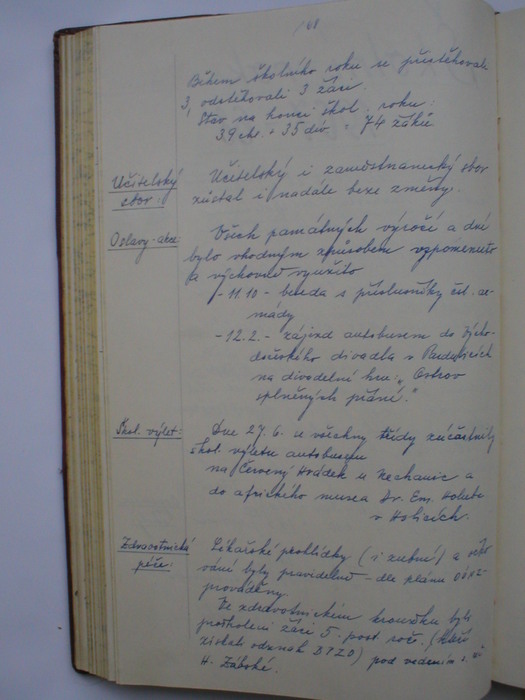 Během školního roku se přistěhovali
3, odstěhovali 3 žáci.
Stav na konci škol. roku:
39 chl. + 35 děv. = 74 žáků
Učitelský
sbor:
Učitelský i zaměstnanecký sbor
zůstal i nadále beze změny.
Oslavy-akce:
Všech památných výročí a dní
bylo vhodným způsobem vzpomenuto
a výchovně využito
- 11.10 - beseda s příslušníky čsl. ar-
mády
- 12.2. - zájezd autobusem do Výcho-
dočeského divadla v Pardubicích
na divadelní hru: „Ostrov
splněných přání."
Škol. výlet:
Dne 27.6. všechny třídy zúčastnily
škol. výletu autobusem
na Červený Hrádek u Nechanic a
do afrického musea Dr. Em. Holuba
v Holicích.
Zdravotnická
péče:
Lékařské prohlídky (i zubní) a očko-
vání byly pravidelně - dle plánu OÚNZ -
prováděny.
Ve zdravotnickém kroužku byli
proškoleni žáci 5. post. roč. (kteří
získali odznak BPZO) pod vedením s. uč.
H. Zábské.